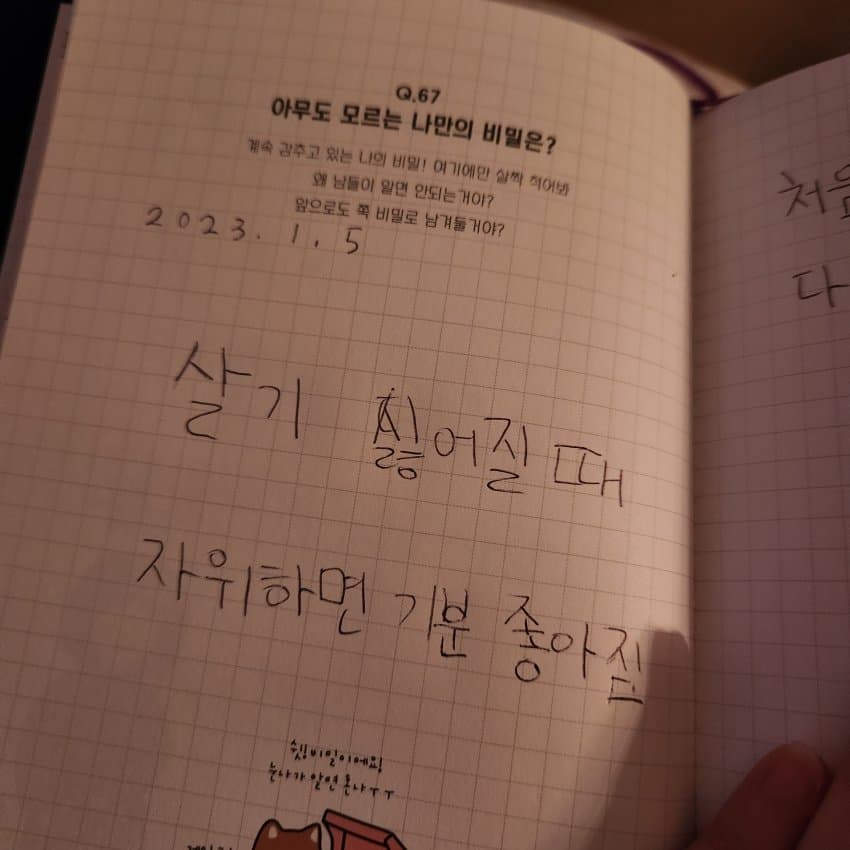 Q.67
아무도 모르는 나만의 비밀은?
계속 감추고 있는 나의 비밀! 여기에만 살짝 적어봐
왜 남들이 알면 안되는거야?
앞으로도 쭉 비밀로 남겨둘거야?
2023. 1. 5
살기 싫어질 때
자위하면 기분 좋아짐
쉿! 비밀이에요!
누나가 알면 혼나ㅜㅜ
처음
다